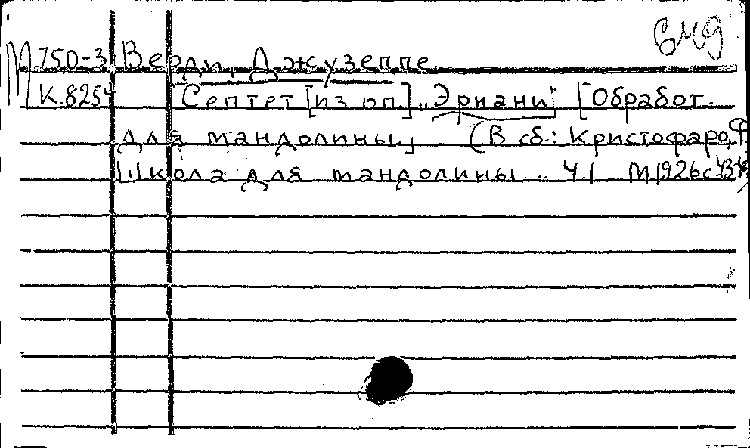 М 750-3 Верди, Джузеппе
К.8254 Септет [из оп.] „Эрнани" [Обработ.
для мандолины] (В сб.: Кристофаро, Ф.
Школа для мандолины .. Ч1 М 1926 с 43